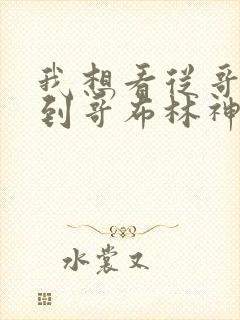 我想看从哥
到哥布林神
水裳又